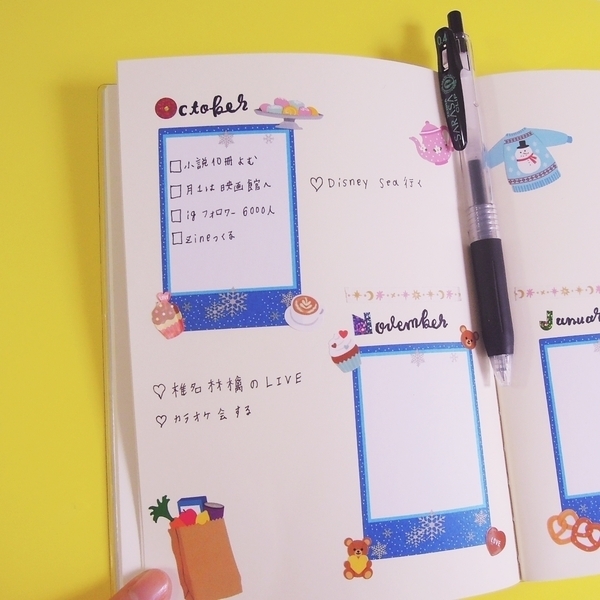 October
小説10冊よむ
月1は映画館へ
igフォロワー6000人
zineつくる
♡Disney Sea行く
♡椎名林檎のLIVE
♡カラオケ会する
November
Januar
SARASA
0.4
LOVE